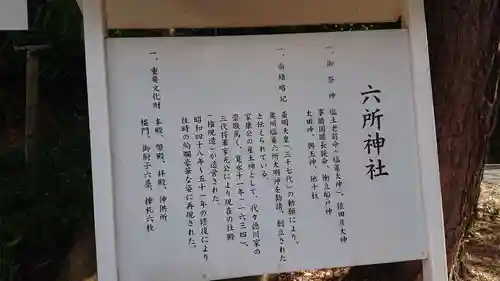 六所神社
一、御祭神 塩土老翁命(塩竃大神)、猿田彦大神
事勝国勝長狭命、衝立船戸神
太田神、興玉神、他十柱
一、由緒略記
斎明天皇(三十七代)の勅願により、
奥州塩竃六所大明神を勧請、創立された
と伝えられている。
家康公の産土神として、代々徳川家の
崇敬篤く、寛永十一年(一六三四)、
三代将軍家光公により現在の社殿
(権現造)が造営された。
昭和四十八年~五十一年の修復により
往時の絢爛豪華な姿に再現された。
一、重要文化財
本殿、幣殿、拝殿、神供所
楼門、御厨子六基、棟札六枚